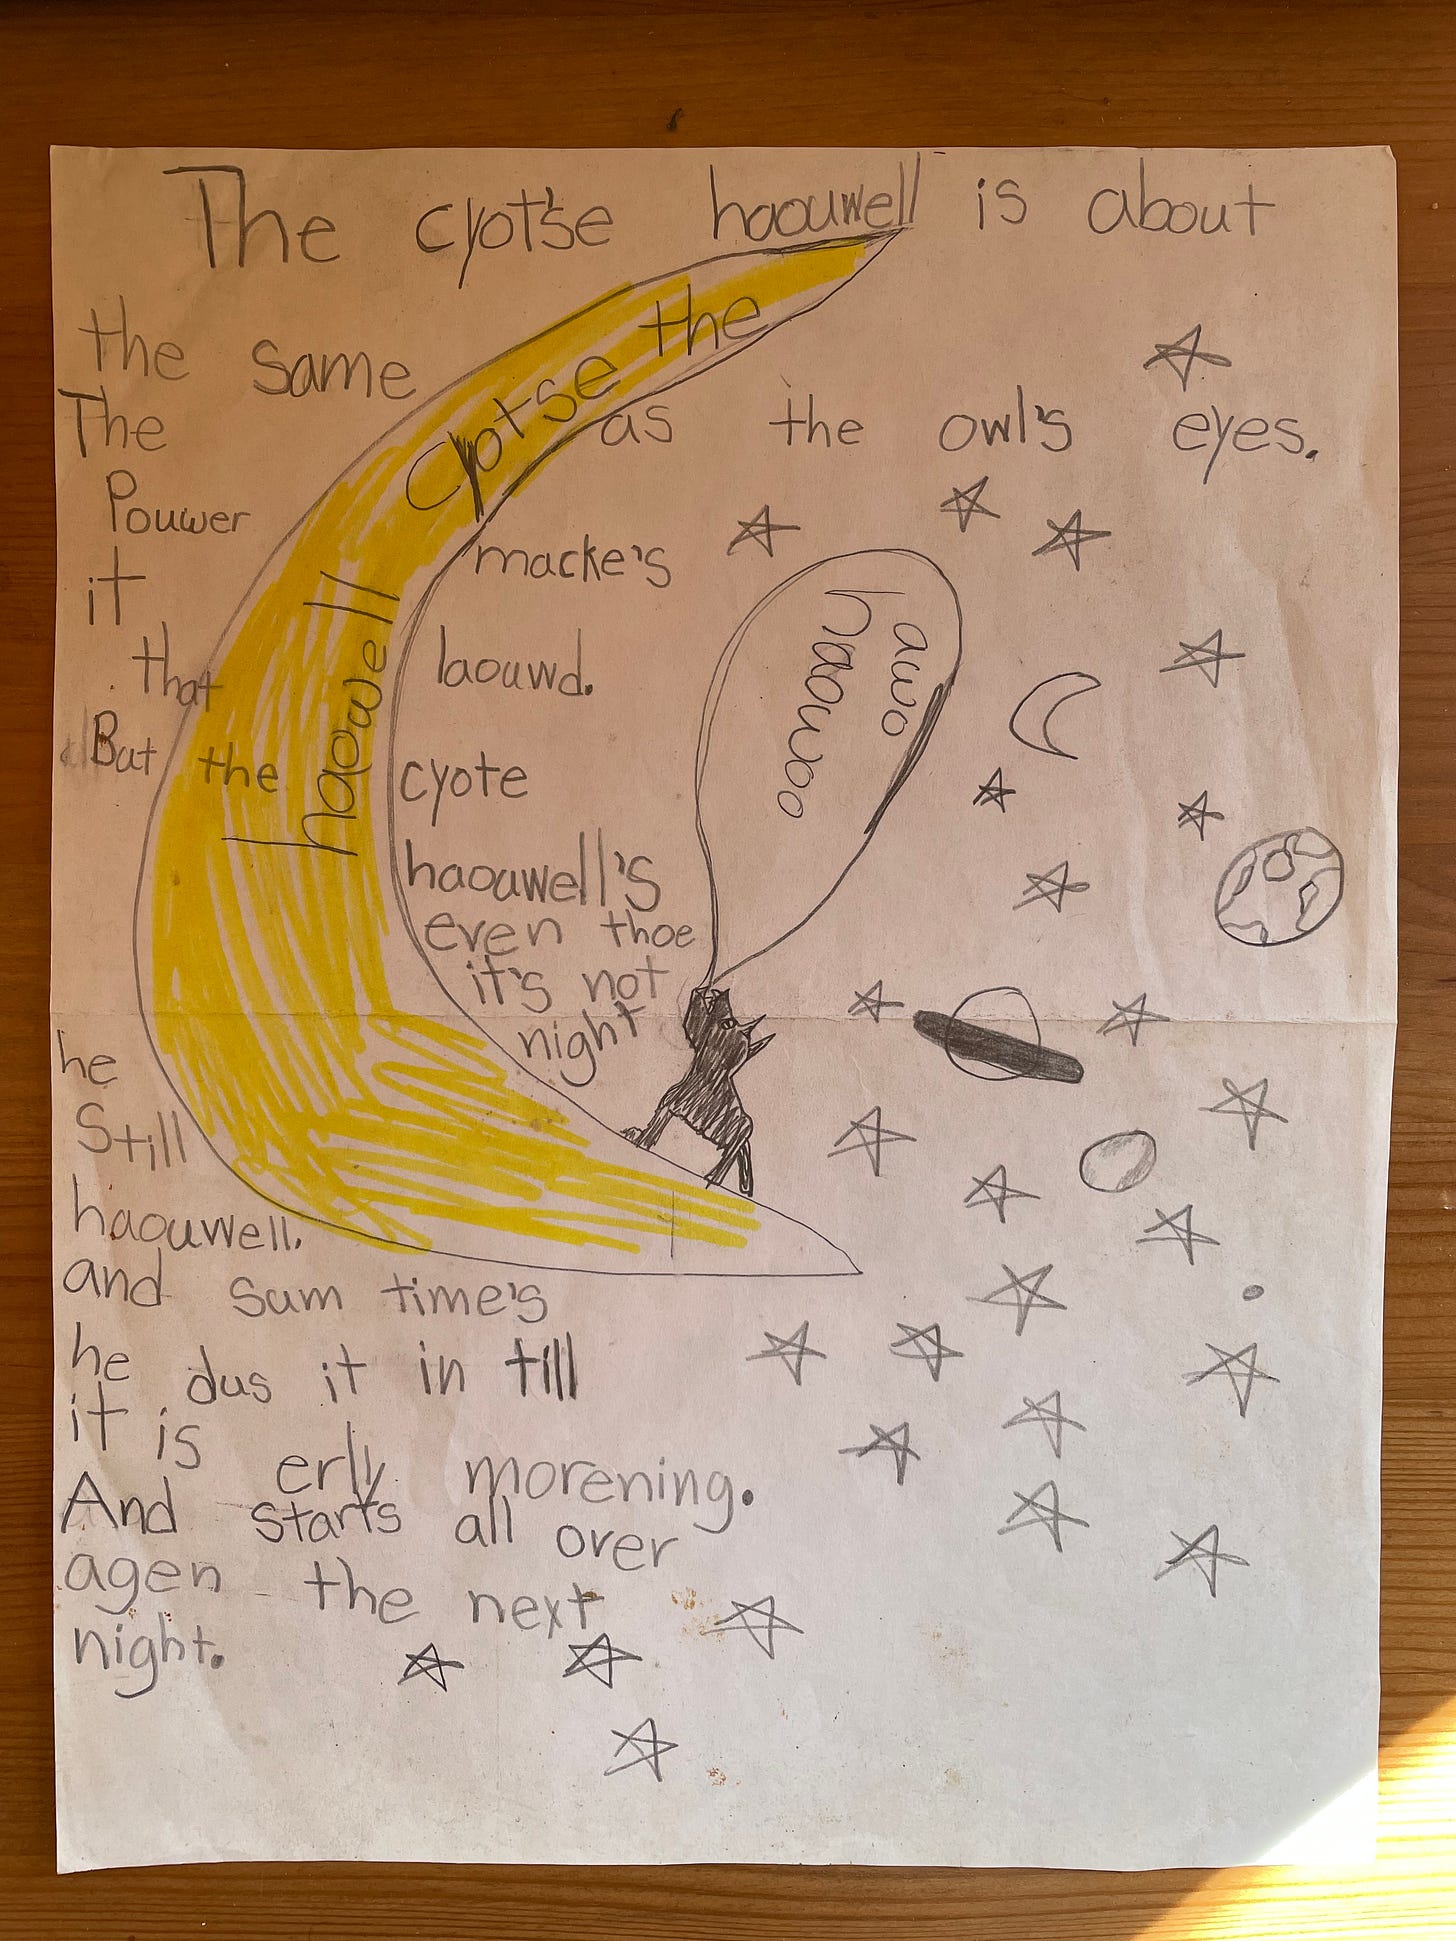 The cyot'se haouwell is about
the same as the owl's eyes.
The
Pouwer macke's
it
that laouwd.
But the cyote
haouwell's
even thoe
it's not
night
he
Still
haouwell.
and sum time's
he dus it in till
it is erly morening.
And starts all over
agen the next
night.
cyotse the
haowell
haouwoo
awoo